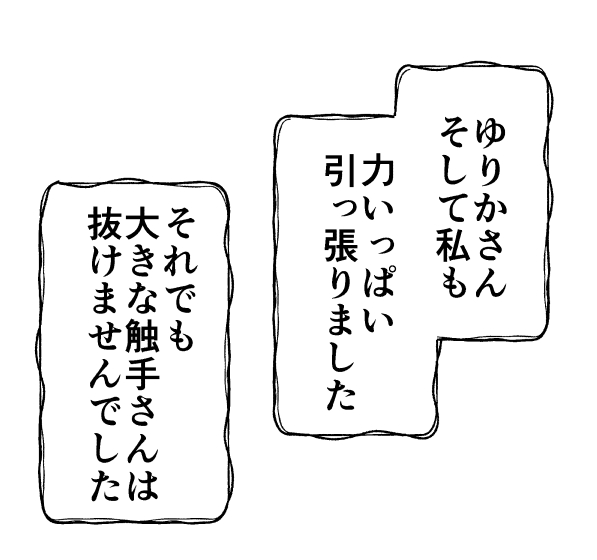 ゆりかさん
そして私も
力いっぱい
引っ張りました
それでも
大きな触手さんは
抜けませんでした